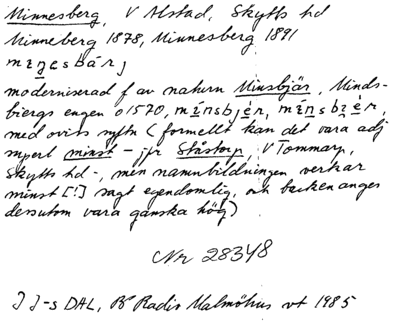 Minnesberg, V Alstad, Skytts hd
Minneberg 1878, Minnesberg 1891
moderniserad f av naturn Minsbjär, Minds-
biergs engen o1570,
med oviss syftn (formellt kan det vara adj
superl minst – jfr Ståstorp, V Tommarp,
Skytts hd –, men namnbildningen verkar
minst [!] sagt egendomlig, och backen anges
dessutom vara ganska hög)
Nr 28348
J J-s DAL, Radio Malmöhus vt 1985